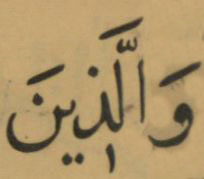 وَالَّذِينَ